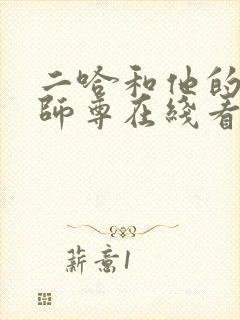 二哈和他的
師尊在綫看
薪意1